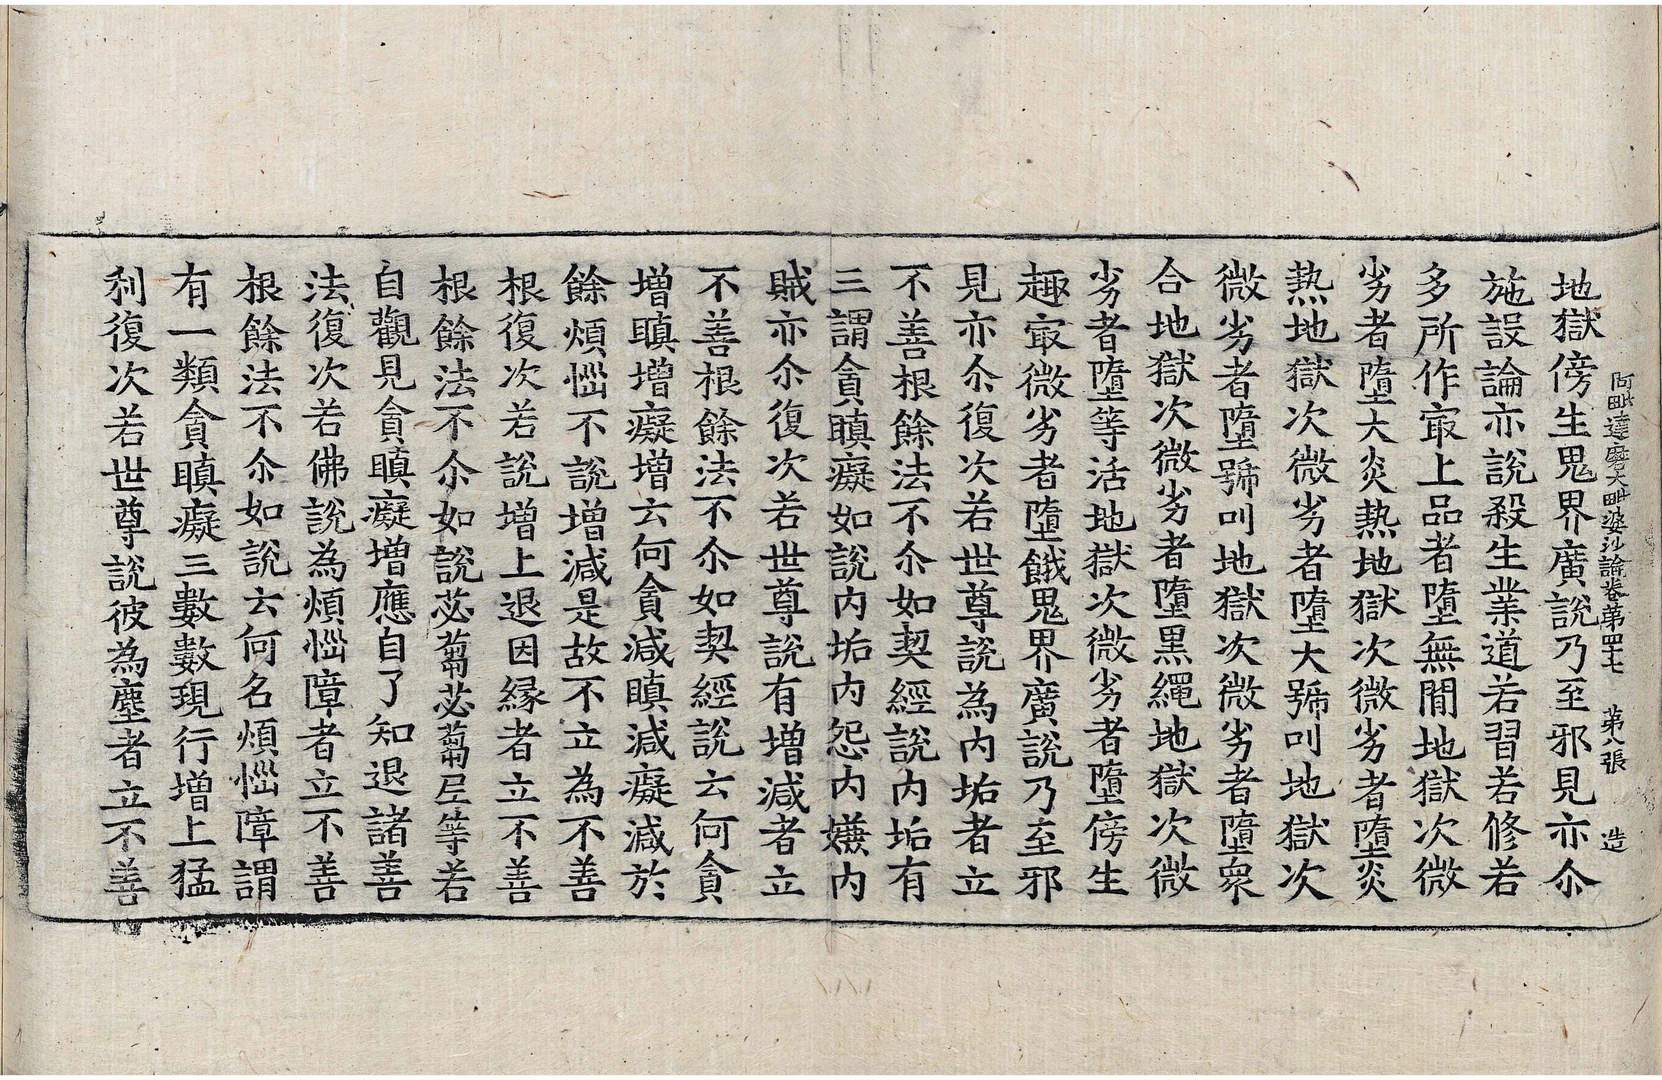 阿毗達磨大毗婆沙論卷第四十七 第八張 造
地獄傍生鬼界廣說乃至邪見亦尒
施設論亦說殺生業道若習若修若
多所作㝡上品者墮無閒地獄次微
劣者墮大炎熱地獄次微劣者墮炎
熱地獄次微劣者墮大號叫地獄次
微劣者墮號叫地獄次微劣者墮衆
合地獄次微劣者墮黑繩地獄次微
劣者墮等活地獄次微劣者墮傍生
趣㝡微劣者墮餓鬼界廣說乃至邪
見亦尒復次若世尊說為內垢者立
不善根餘法不尒如契經說內垢有
三謂貪瞋癡如說內垢內怨內嫌內
賊亦尒復次若世尊說有增減者立
不善根餘法不尒如契經說云何貪
增瞋增癡增云何貪減瞋減癡減於
餘煩惱不說增減是故不立為不善
根復次若說增上退因緣者立不善
根餘法不尒如說苾蒭苾蒭尼等若
自觀見貪瞋癡增應自了知退諸善
法復次若佛說為煩惱障者立不善
根餘法不尒如說云何名煩惱障謂
有一類貪瞋癡三數數現行增上猛
利復次若世尊說彼為塵者立不善